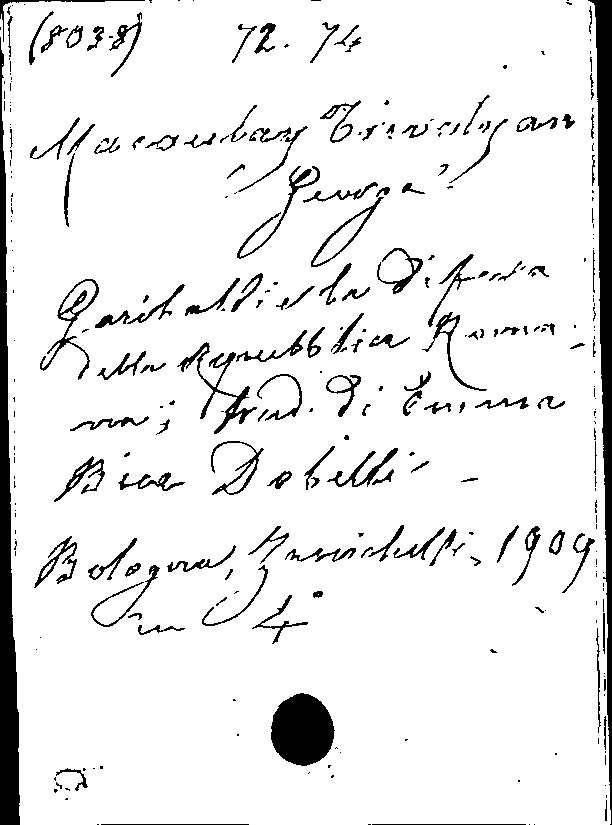 (8038) 72. 74
Macaulay Trevelyan
George
Garibaldi e la difesa
della Repubblica Roma-
na; trad. di Emma
Bice Dobelli -
Bologna, Zanichelli, 1909
in 4°